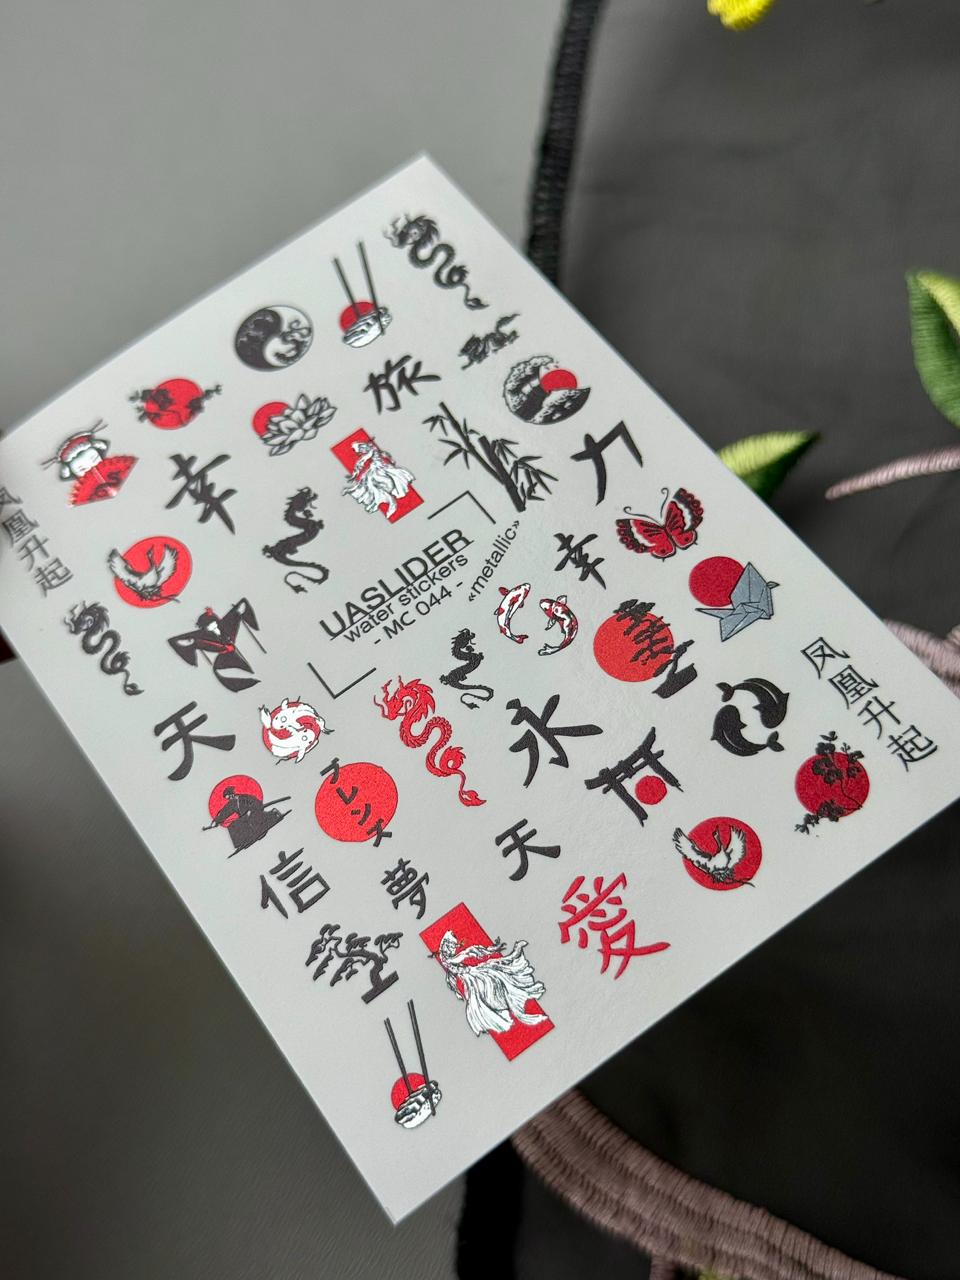 旅
力
幸
凤凰升起
UASLIDER
water stickers
- MC 044 -
«metallic»
幸
天
永
凤凰升起
フレンズ
天
信
夢
愛